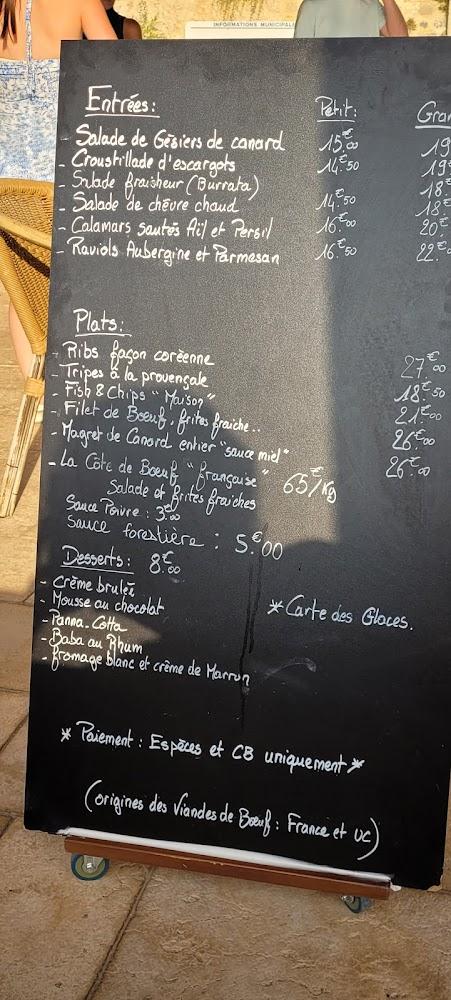 INFORMATIONS MUNICIPAL
Entrées: Petit: Gra
- Salade de Gésiers de canard 15.€00 19
- Croustillade d'escargots 14.€50 19€
- Salade fraîcheur (Burrata) 18.€
- Salade de chèvre chaud 14.€50 18.€
- Calamars sautés Ail et Persil 16.€00 20€
- Raviols Aubergine et Parmesan 16.€50 22.€
Plats:
- Ribs façon coréenne 27€00
- Tripes à la provençale 18.€50
- Fish & Chips "Maison" 21.€00
- Filet de Boeuf, frites fraiche.. 26€00
- Magret de Canard entier "sauce miel" 26.€00
- La Côte de Boeuf "française" 65€/Kg
Salade et frites fraiches
Sauce Poivre : 3.€00
Sauce forestière : 5.€00
Desserts: 8.€00
- Crème brulée
- Mousse au chocolat
- Panna-Cotta
- Baba au Rhum
- fromage blanc et crème de Marron
* Carte des Glaces.
* Paiement : Espèces et CB uniquement *
(origines des Viandes de Boeuf : France et UC)